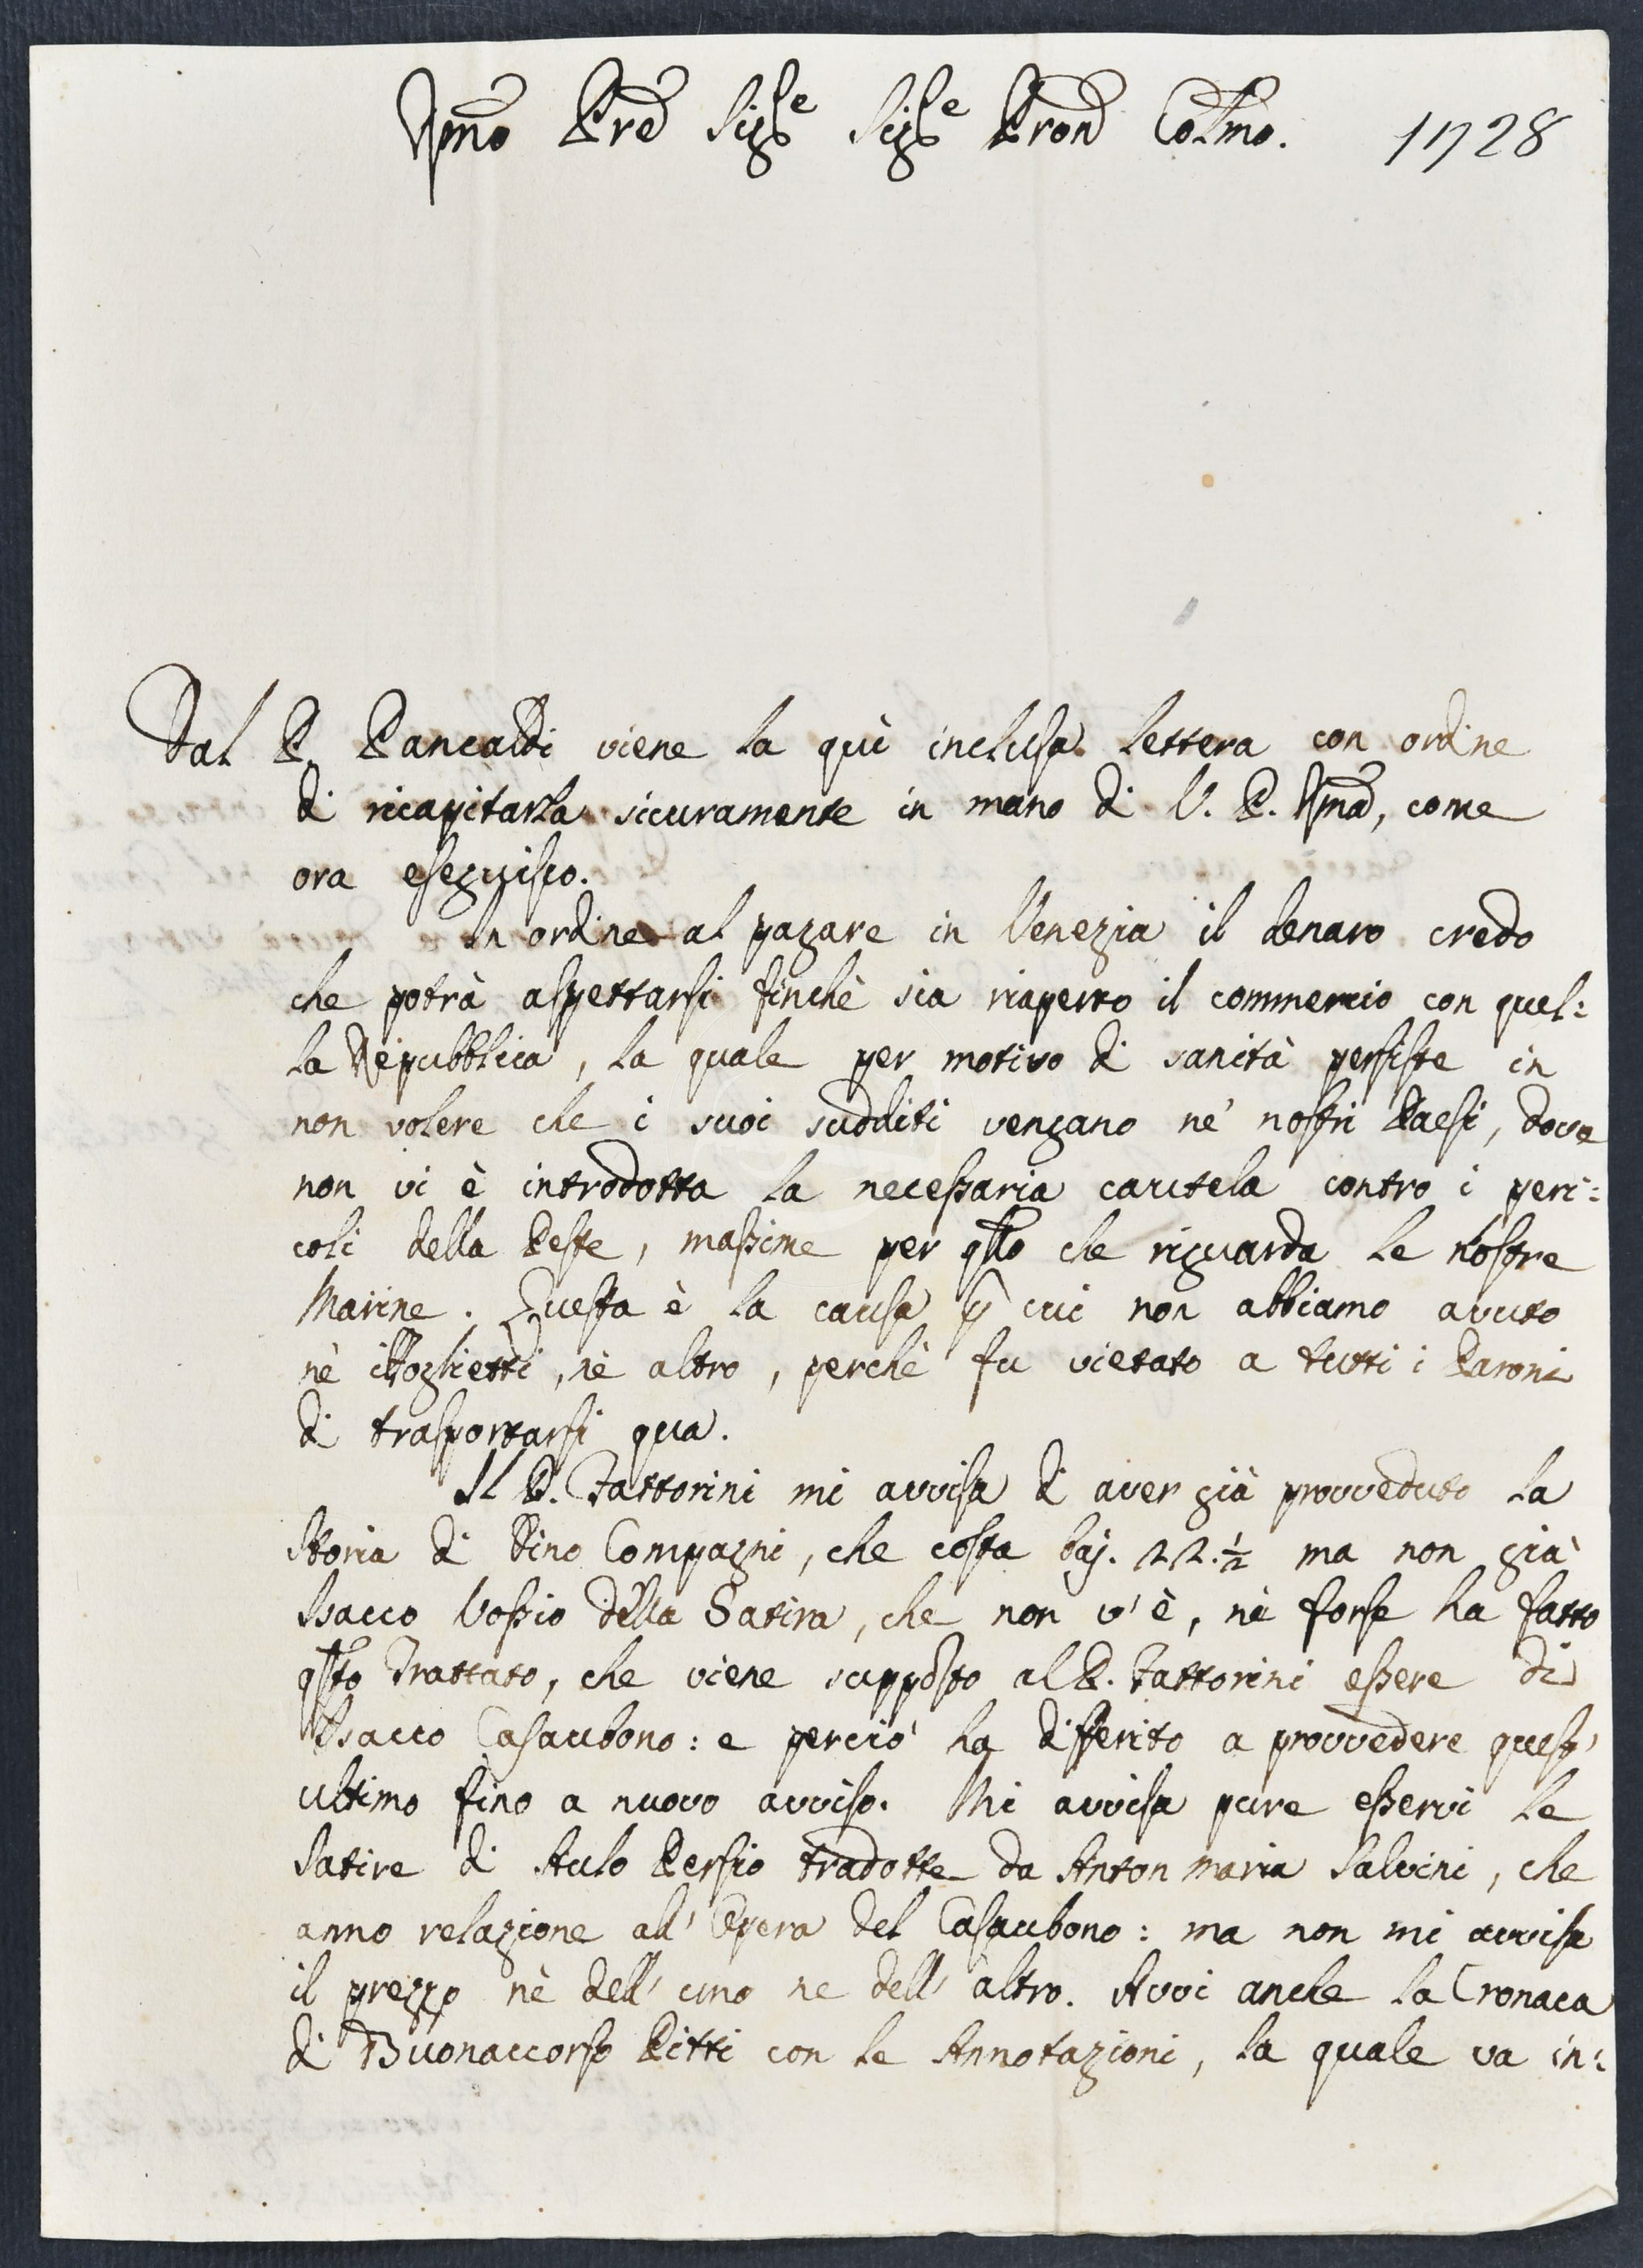 Rmo Pre Sigre Sigre Pron Colmo. 1728
Dal P. Pancaldi viene la quì inclusa lettera con ordine
di ricapitarla sicuramente in mano di V. P. Rma, come
ora eseguisco.
In ordine al pagare in Venezia il denaro credo
che potrà aspettarsi finchè sia riaperto il commercio con quel:
la Repubblica, la quale per motivo di sanità persiste in
non volere che i suoi sudditi vengano ne' nostri Paesi, dove
non vi è introdotta la necessaria cautela contro i peri:
coli della Peste, massime per qllo che riguarda le nostre
Marine. Questa è la causa p cui non abbiamo avuto
nè i Foglietti, nè altro, perchè fu vietato a tutti i Paroni
di trasportarsi qua.
Il P. Fattorini mi avvisa di aver già provveduto la
Storia di Dino Compagni, che costa baj. 22.½ ma non già
Isacco Vossio della Satira, che non v'è, nè forse ha fatto
qsto Trattato, che viene supposto al P. Fattorini essere di
Isacco Casaubono: e perciò ha differito a provvedere quest'
ultimo fino a nuovo avviso. Mi avvisa pure esservi le
Satire di Aulo Persio tradotte da Anton Maria Salvini, che
anno relazione all' Opera del Casaubono: ma non mi avvisa
il prezzo nè dell' uno ne dell' altro. Avvi anche la Cronaca
di Buonaccorso Pitti con le Annotazioni, la quale va in: